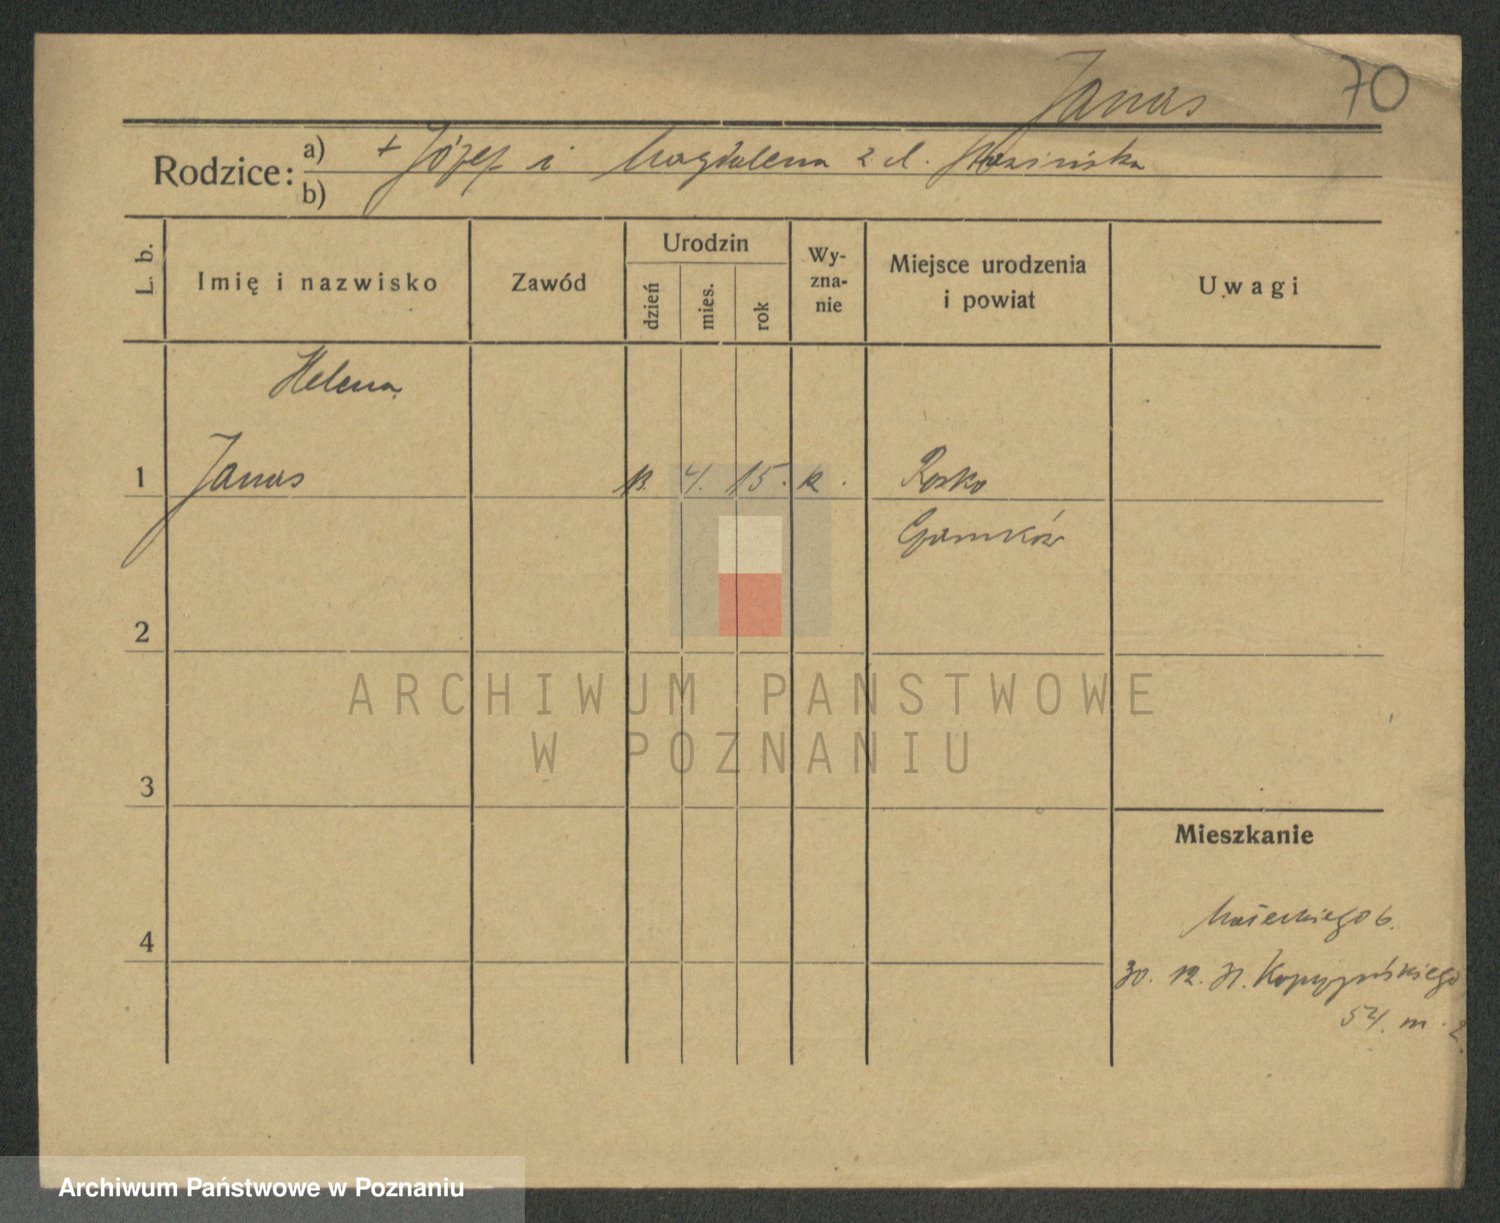 Janas
70
Rodzice:
a) + Józef i Magdalena z d.
b)
L. b.
Imię i nazwisko
Zawód
Urodzin
dzień
mies.
rok
Wy-
zna-
nie
Miejsce urodzenia
i powiat
Uwagi
Helena
1 Janas 13. 4. 15. k. Rosko
Czarnków
2
3
4
Mieszkanie
Małeckiego 6.
30. 12.
54. m. 2.
ARCHIWUM PAŃSTWOWE
W POZNANIU
Archiwum Państwowe w Poznaniu